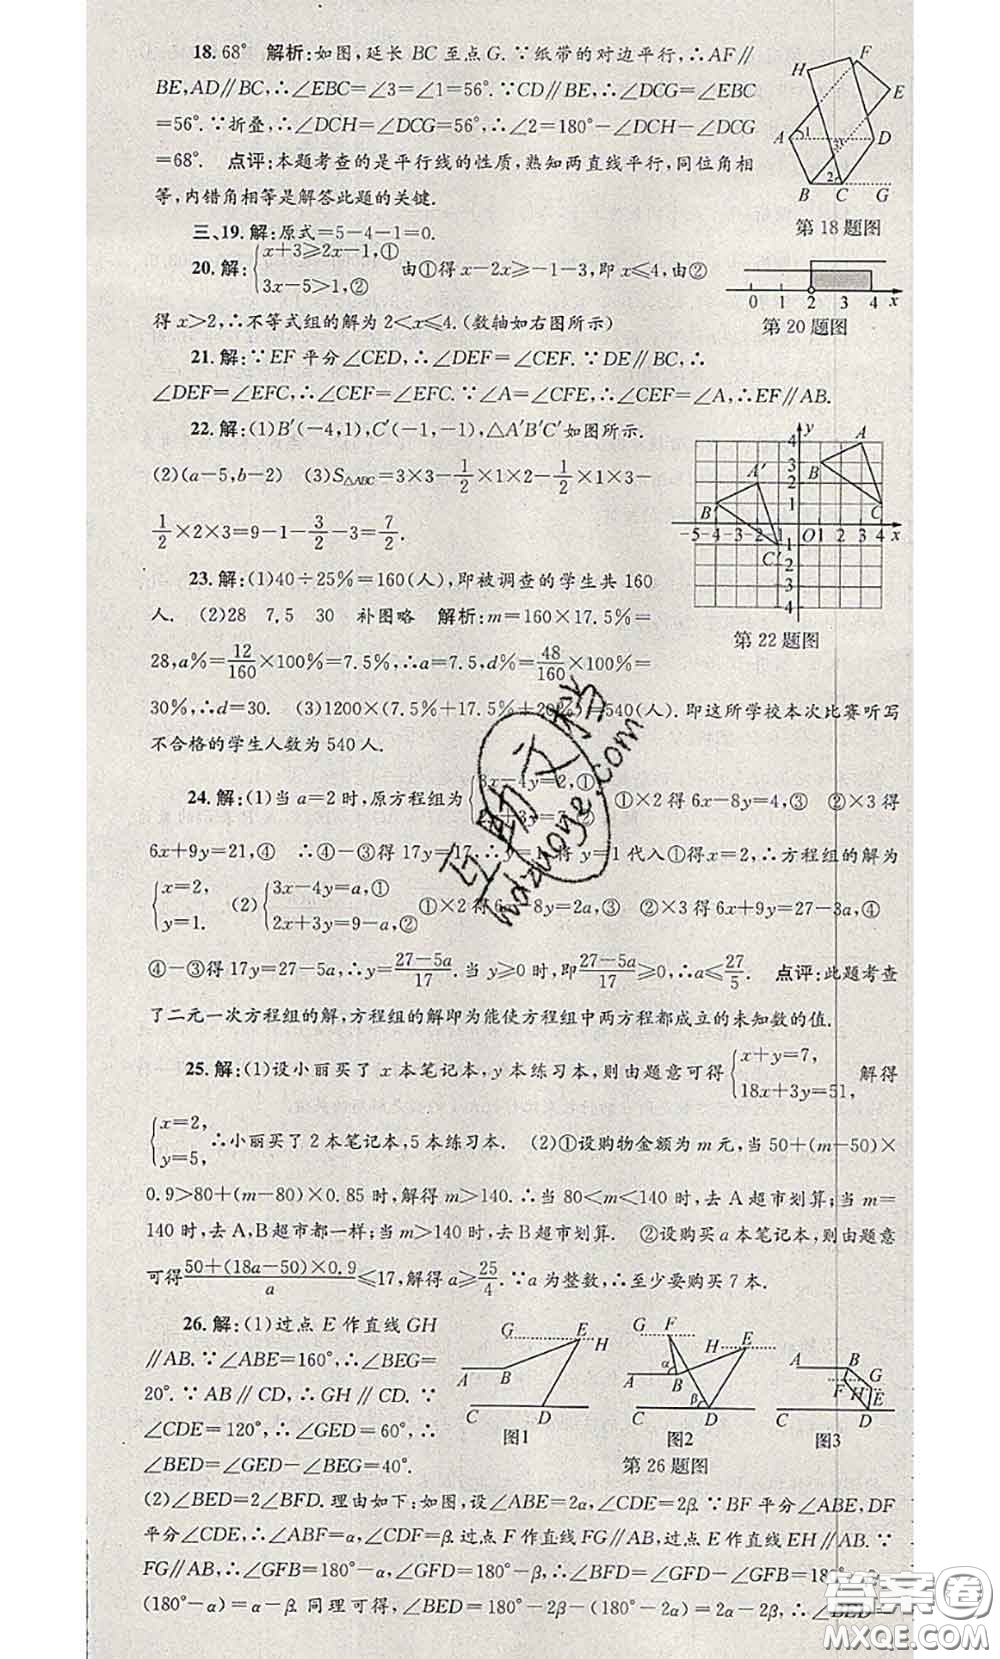 18.68° 解析:如图,延长 BC 至点G.∵纸带的对边平行,∴AF∥
BE,AD∥BC,∴∠EBC=∠3=∠1=56°.∵CD∥BE,∴∠DCG=∠EBC
=56°.∵折叠,∴∠DCH=∠DCG=56°,∴∠2=180°−∠DCH−∠DCG
=68°. 点评:本题考查的是平行线的性质,熟知两直线平行,同位角相
等,内错角相等是解答此题的关键.
H F E A 1 3 D 2 B C G
第18题图
三、19.解:原式=5−4−1=0.
20.解:{x+3≥2x−1,①
3x−5>1,②
由①得x−2x≥−1−3,即x≤4,由②
得x>2,∴不等式组的解为2<x≤4.(数轴如右图所示)
0 1 2 3 4 x
第20题图
21.解:∵EF平分∠CED,∴∠DEF=∠CEF.∵DE∥BC,∴
∠DEF=∠EFC,∴∠CEF=∠EFC.∵∠A=∠CFE,∴∠CEF=∠A,∴EF∥AB.
22.解:(1)B′(−4,1),C′(−1,−1),△A′B′C′如图所示.
(2)(a−5,b−2) (3)S△ABC=3×3−1/2×1×2−1/2×1×3−
1/2×2×3=9−1−3/2−3=7/2.
y 4 3 2 1 A B C A′ B′ C′
−5−4−3−2 O 1 2 3 4 x
第22题图
23.解:(1)40÷25%=160(人),即被调查的学生共160
人. (2)28 7.5 30 补图略 解析:m=160×17.5%=
28,a%=12/160×100%=7.5%,∴a=7.5,d%=48/160×100%=
30%,∴d=30. (3)1200×(7.5%+17.5%+20%)=540(人).即这所学校本次比赛听写
不合格的学生人数为540人.
24.解:(1)当a=2时,原方程组为{3x−4y=2,①
2x+3y=7,②
①×2得6x−8y=4,③ ②×3得
6x+9y=21,④ ∴④−③得17y=17,∴y=1,将y=1代入①得x=2,∴方程组的解为
{x=2,
y=1.
(2){3x−4y=a,①
2x+3y=9−a,②
①×2得6x−8y=2a,③ ②×3得6x+9y=27−3a,④
④−③得17y=27−5a,∴y=(27−5a)/17.当y≥0时,即(27−5a)/17≥0,∴a≤27/5. 点评:此题考查
了二元一次方程组的解,方程组的解即为能使方程组中两方程都成立的未知数的值.
25.解:(1)设小丽买了x本笔记本,y本练习本,则由题意可得{x+y=7,
18x+3y=51,
解得
{x=2,
y=5,
∴小丽买了2本笔记本,5本练习本. (2)①设购物金额为m元,当50+(m−50)×
0.9>80+(m−80)×0.85时,解得m>140.∴当80<m<140时,去A超市划算;当m=
140时,去A,B超市都一样;当m>140时,去B超市划算. ②设购买a本笔记本,则由题意
可得(50+(18a−50)×0.9)/a≤17,解得a≥25/4.∵a为整数,∴至少要购买7本.
26.解:(1)过点E作直线GH
∥AB.∵∠ABE=160°,∴∠BEG=
20°.∵AB∥CD,∴GH∥CD.∵
∠CDE=120°,∴∠GED=60°,∴
∠BED=∠GED−∠BEG=40°.
G E H A B C D
图1
G F H E α A B β C D
图2
A B G F H E C D
图3
第26题图
(2)∠BED=2∠BFD.理由如下:如图,设∠ABE=2α,∠CDE=2β.∵BF平分∠ABE,DF
平分∠CDE,∴∠ABF=α,∠CDF=β.过点F作直线FG∥AB,过点E作直线EH∥AB.∵
FG∥AB,∴∠GFB=180°−α,∠GFD=180°−β,∴∠BFD=∠GFD−∠GFB=180°−β−
(180°−α)=α−β.同理可得,∠BED=180°−2β−(180°−2α)=2α−2β,∴∠BED=
互助文学
hdzuoye.com
答案圈
MXQE.COM